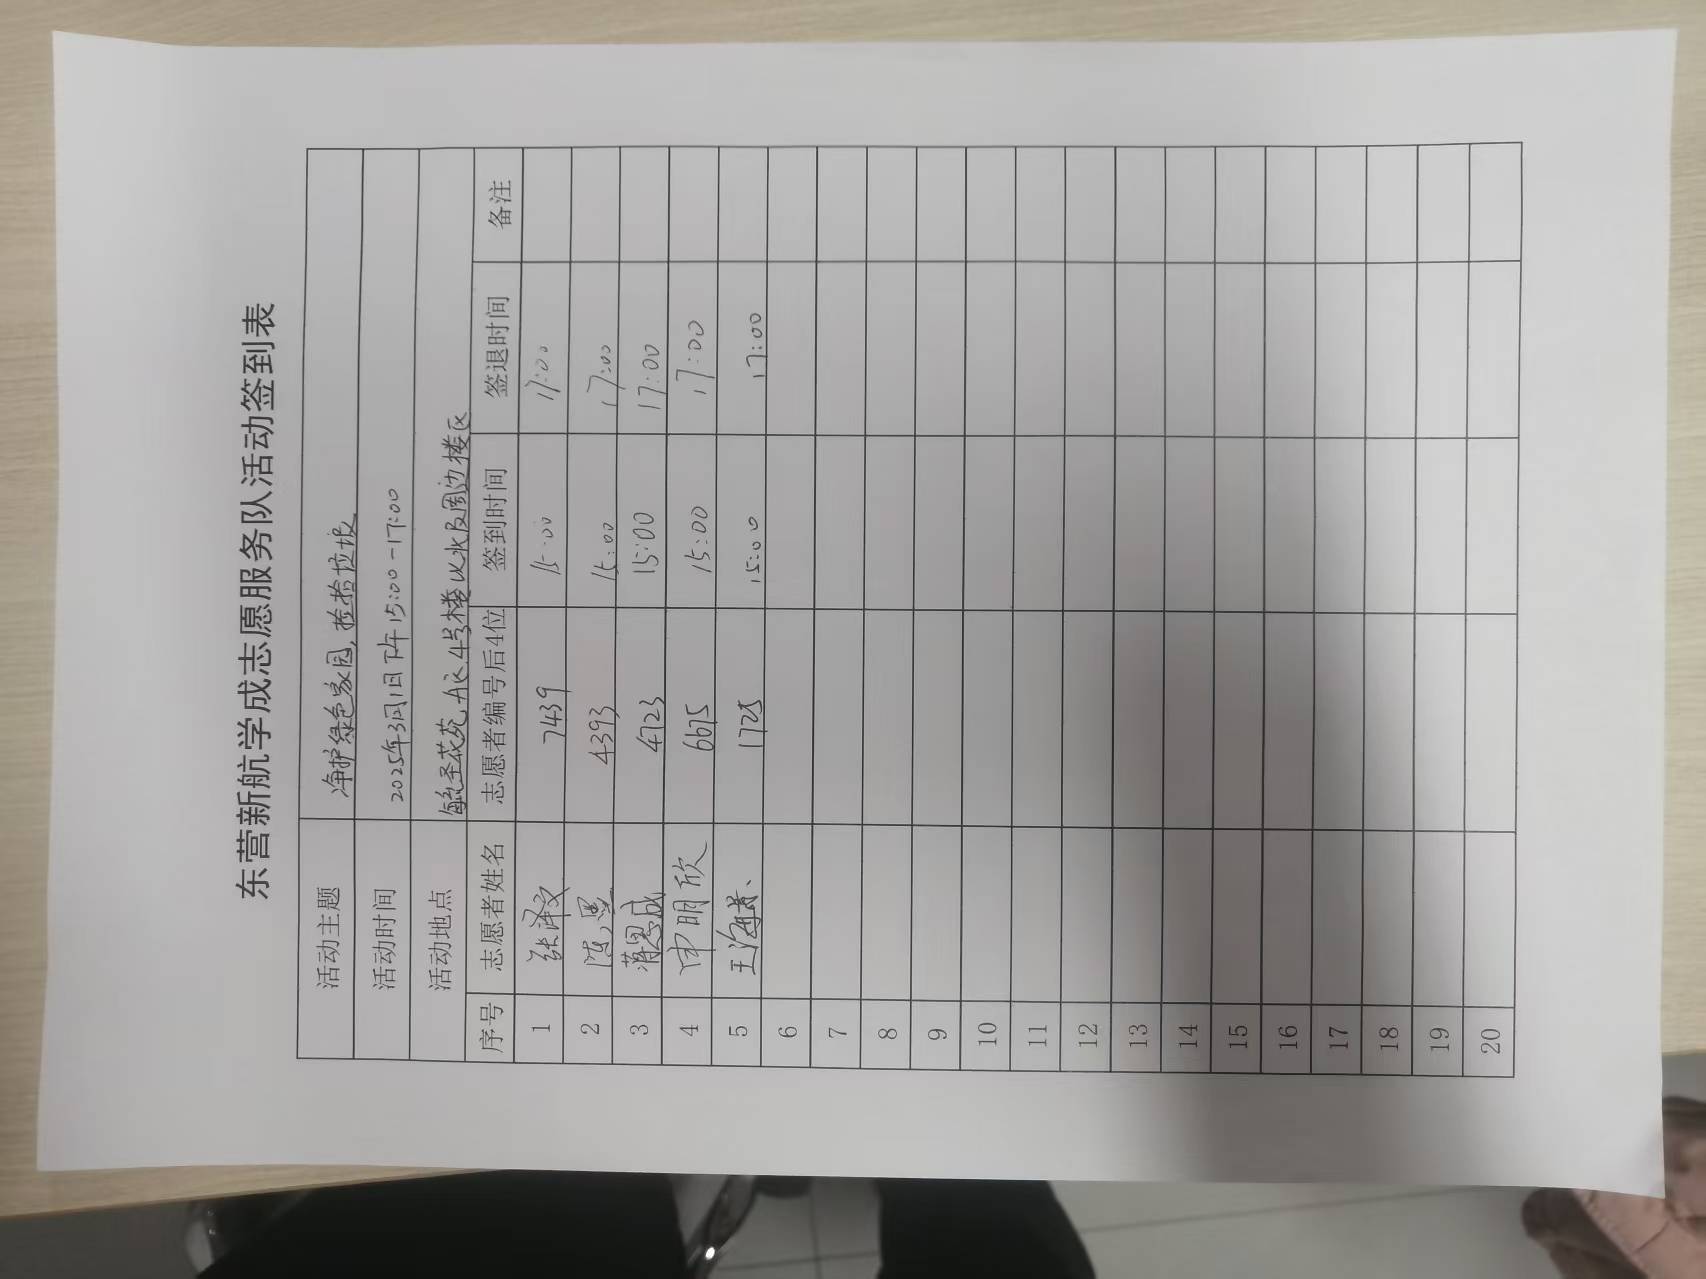 东营新航学成志愿服务队活动签到表
活动主题 净护绿色家园,捡捡垃圾
活动时间 2025年3月1日下午15:00-17:00
活动地点 圣花苑A区4号楼以北及周边楼区
序号 志愿者姓名 志愿者编号后4位 签到时间 签退时间 备注
1 张泽文 7439 15:00 17:00
2 陈思 4393 15:00 17:00
3 蒋恩威 4723 15:00 17:00
4 申明欣 6675 15:00 17:00
5 王海 1725 15:00 17:00
6
7
8
9
10
11
12
13
14
15
16
17
18
19
20